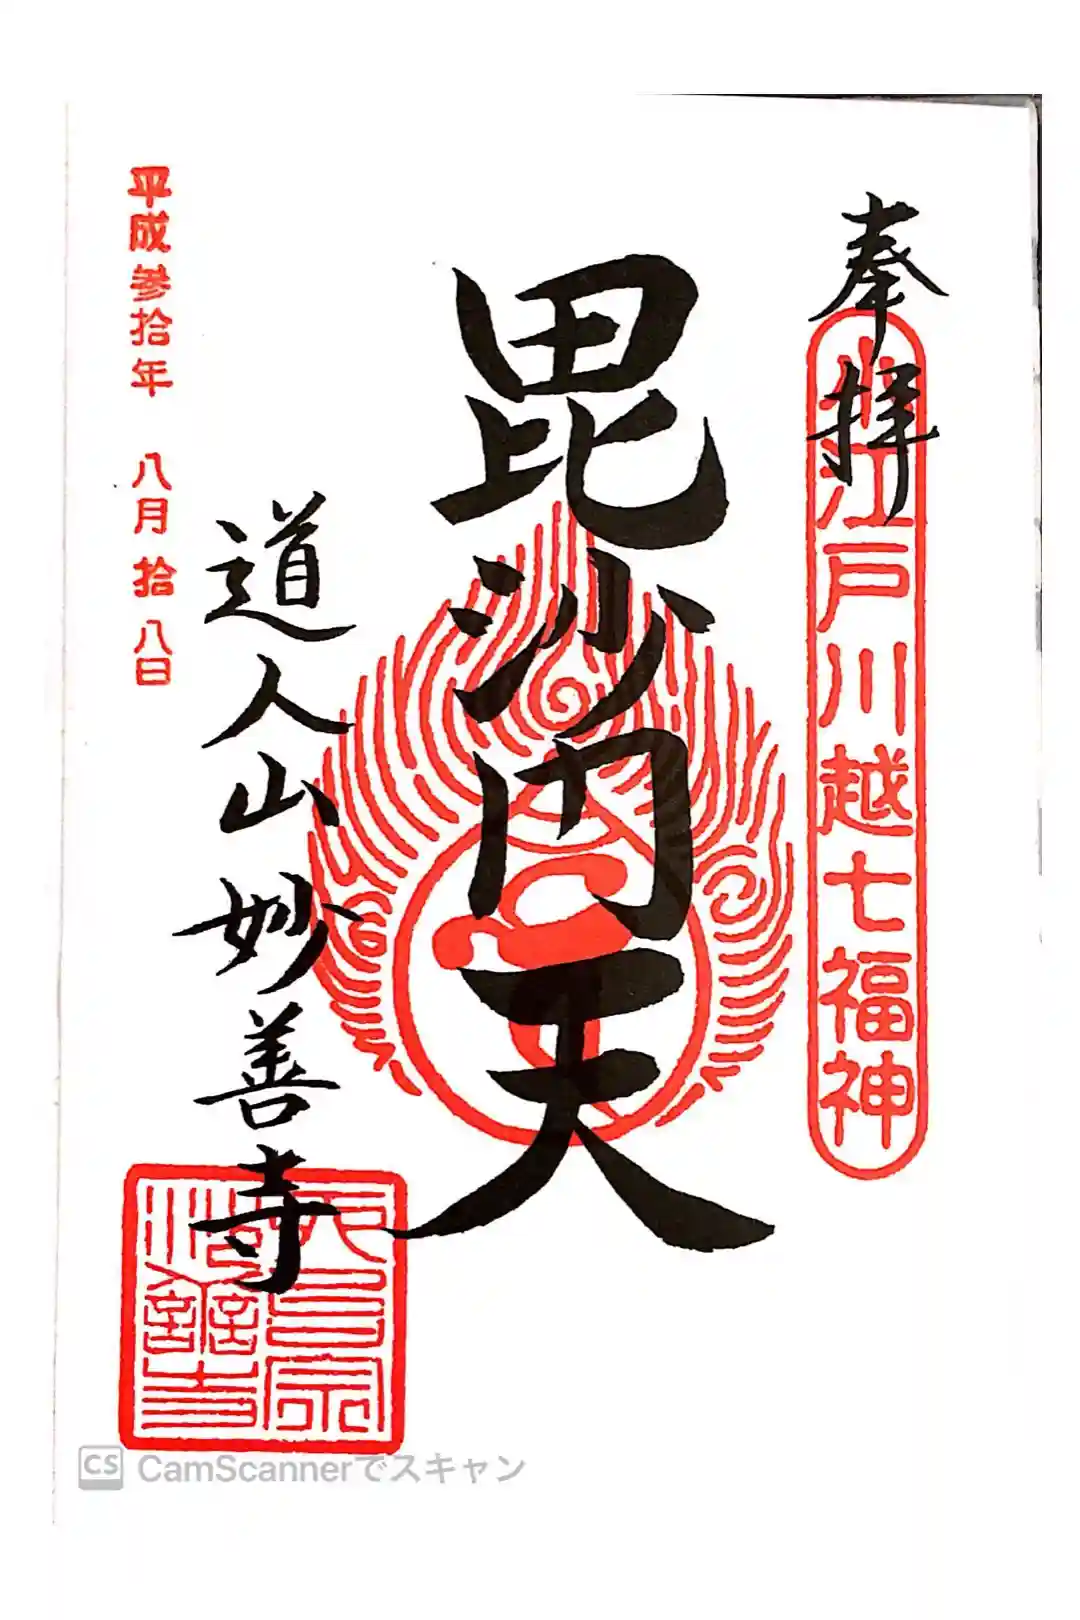 奉拝
小江戸川越七福神
毘沙門天
道人山妙善寺
平成参拾年 八月拾八日
天台宗
妙善寺
CS CamScannerでスキャン